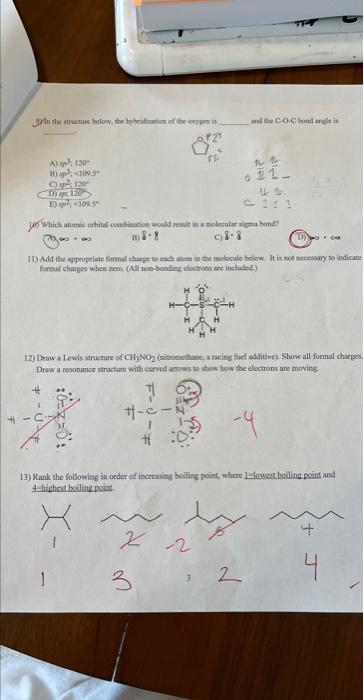 9) In the structure below, the hybridization of the oxygen is ______ and the C-O-C bond angle is
______.
A) sp³; 120°
B) sp³; <109.5°
C) sp²; 120°
D) sp; 120°
E) sp²; <109.5°
10) Which atomic orbital combination would result in a molecular sigma bond?
A)
B)
C)
D)
11) Add the appropriate formal charge to each atom in the molecule below. It is not necessary to indicate
formal charges when zero. (All non-bonding electrons are included.)
H O
H-C-S-C-H
H C H
H H H
12) Draw a Lewis structure of CH₃NO₂ (nitromethane, a racing fuel additive). Show all formal charges.
Draw a resonance structure with curved arrows to show how the electrons are moving.
H H O
H-C-N H-C-N -4
H O H O
13) Rank the following in order of increasing boiling point, where 1=lowest boiling point and
4=highest boiling point.
1 2 -2 3 4
1 3 3 2 4